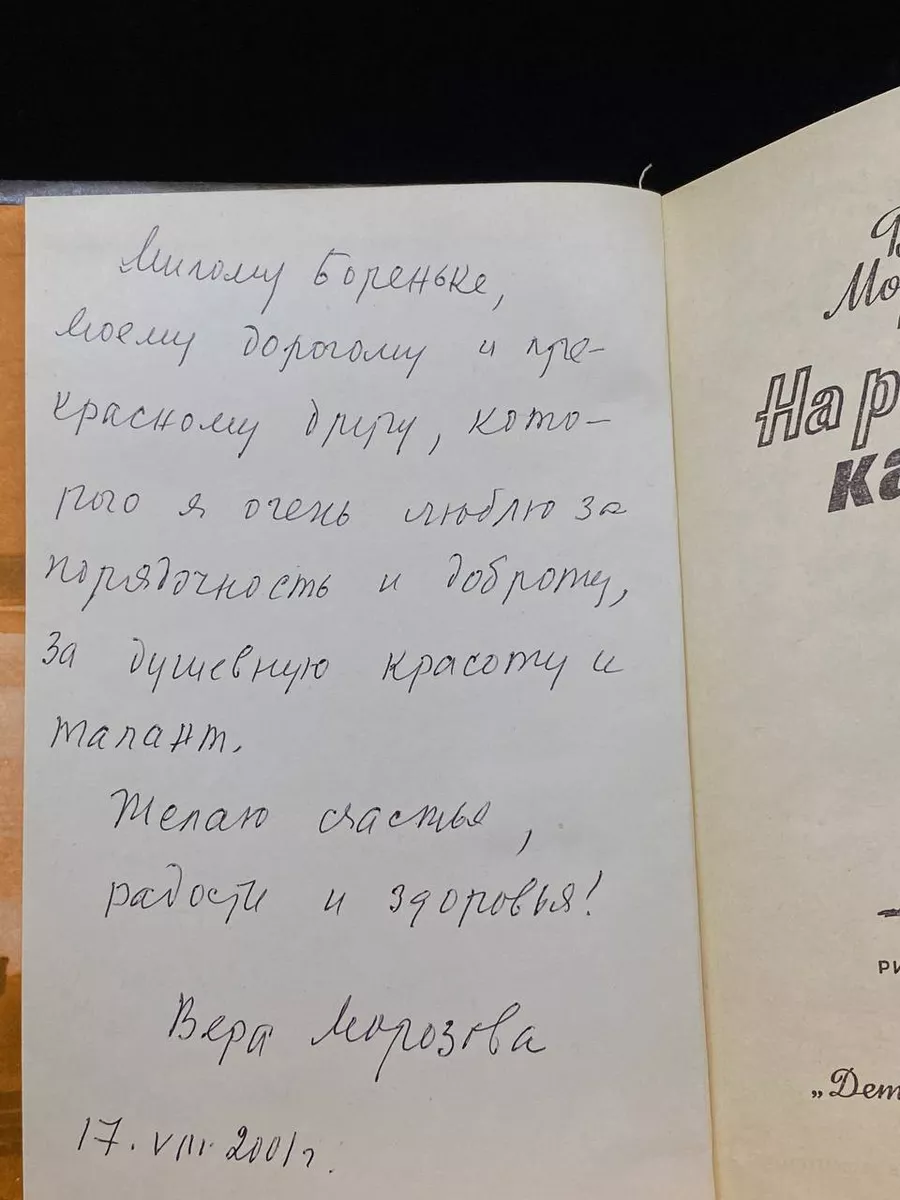 Милому Бореньке,
моему дорогому и пре-
красному другу, кото-
рого я очень люблю за
порядочность и доброту,
за душевную красоту и
талант.
Желаю счастья,
радости и здоровья!
Вера Морозова
17. VIII. 2001 г.
В
Мо
На р
ка
РИ
„Дет